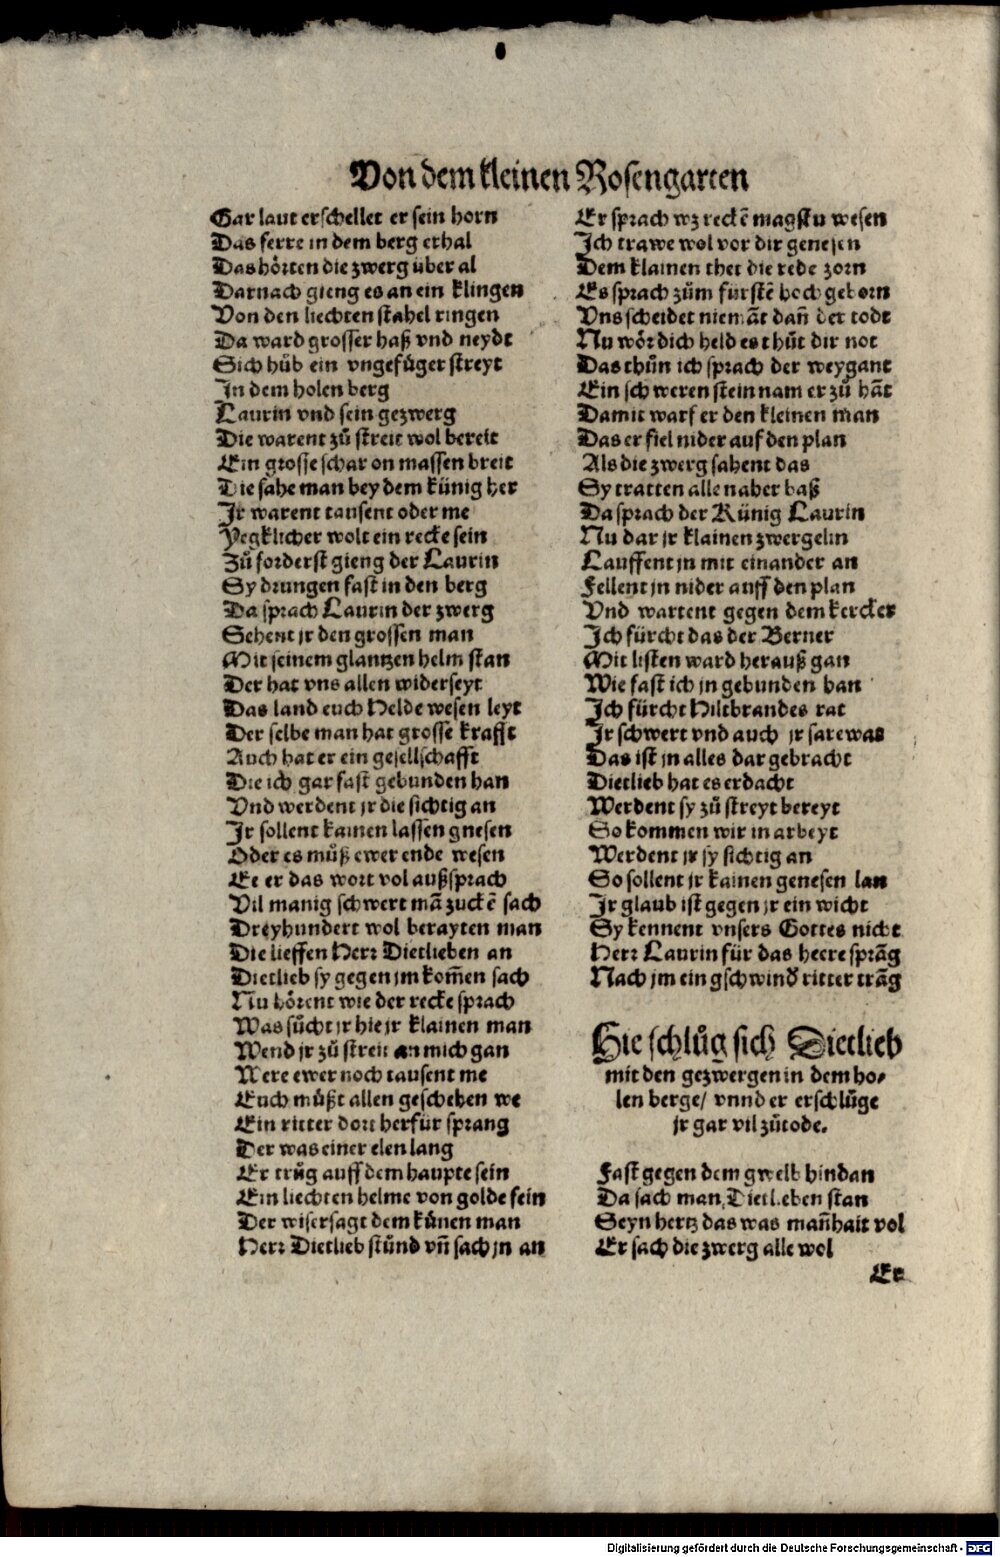 Von dem kleinen Rosengarten
Gar laut erschellet er sein horn
Das ferre in dem berg erhal
Das hôrten die zwerg über al
Darnach gieng es an ein klingen
Von den liechten stahel ringen
Da ward grosser haß vnd neydt
Sich hůb ein vngefůger streyt
In dem holen berg
Laurin vnd sein gezwerg
Die warent zů streit wol bereit
Ein grosse schar on massen breit
Die sahe man bey dem künig her
Ir warent tausent oder me
Yegklicher wolt ein recke sein
Zů forderst gieng der Laurin
Sy drungen fast in den berg
Da sprach Laurin der zwerg
Sehent jr den grossen man
Mit seinem glantzen helm stan
Der hat vns allen widerseyt
Das land euch Helde wesen leyt
Der selbe man hat grosse krafft
Auch hat er ein gesellschafft
Die ich gar fast gebunden han
Vnd werdent jr die sichtig an
Jr sollent kainen lassen gnesen
Oder es můß ewer ende wesen
Ee er das wort vol außsprach
Vil manig schwert mā zuckē sach
Dreyhundert wol berayten man
Die lieffen Herr Dietlieben an
Dietlieb sy gegen jm kom̄en sach
Nu hôrent wie der recke sprach
Was sůcht jr hie jr klainen man
Wend jr zů streit an mich gan
Were ewer noch tausent me
Euch můßt allen geschehen we
Ein ritter dort herfür sprang
Der was einer elen lang
Er trůg auff dem haupte sein
Ein liechten helme von golde fein
Der wisersagt dem künen man
Herr Dietlieb stůnd vn̄ sach jn an
Er sprach wz reckē magstu wesen
Ich trawe wol vor dir genesen
Dem klainen thet die rede zorn
Es sprach zům fürstē hoch geborn
Vns scheidet niemāt dan̄ der todt
Nu wôr dich held es thůt dir not
Das thůn ich sprach der weygant
Ein schweren stein nam er zů hāt
Damit warf er den kleinen man
Das er fiel nider auf den plan
Als die zwerg sahent das
Sy tratten alle naher baß
Da sprach der Künig Laurin
Nu dar jr klainen zwergelin
Lauffent jn mit einander an
Fellent jn nider auff den plan
Vnd wartent gegen dem kercker
Ich fürcht das der Berner
Mit listen ward herauß gan
Wie fast ich jn gebunden han
Ich fürcht Hiltbrandes rat
Jr schwert vnd auch jr sarewas
Das ist jn alles dar gebracht
Dietlieb hat es erdacht
Werdent sy zů streyt bereyt
So kommen wir in arbeyt
Werdent jr sy sichtig an
So sollent jr kainen genesen lan
Jr glaub ist gegen jr ein wicht
Sy kennent vnsers Gottes nicht
Herr Laurin für das heere sprāg
Nach jm ein gschwind ritter trāg
Hie schlůg sich Dietlieb
mit den gezwergen in dem ho⸗
len berge/ vnnd er erschlůge
jr gar vil zůtode.
Fast gegen dem gwelb hindan
Da sach man Dietlieben stan
Seyn hertz das was man̄hait vol
Er sach die zwerg alle wol
Er
Digitalisierung gefördert durch die Deutsche Forschungsgemeinschaft - DFG